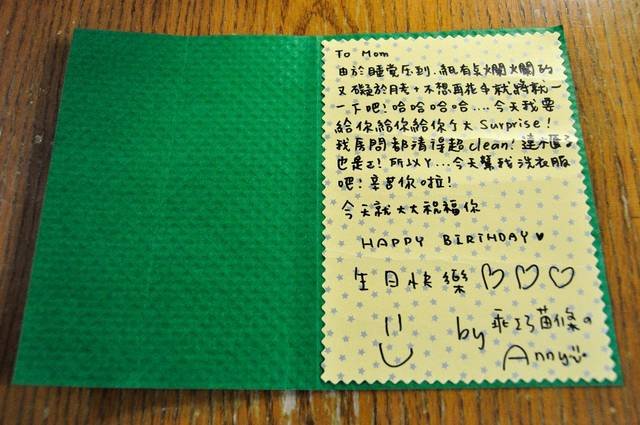 To Mom
由於睡覺压到.紙有点爛爛的
又礙於月考+不想再花手就將就一
一下吧!哈哈哈哈....今天我要
給你給你給你个大Surprise!
我房間都清得超clean!連木櫃
也是!所以Y...今天幫我洗衣服
吧!辛苦你啦!
今天就大大祝福你
HAPPY BIRTHDAY♥
生日快樂♡♡♡
by 乖巧苗條の
Anny